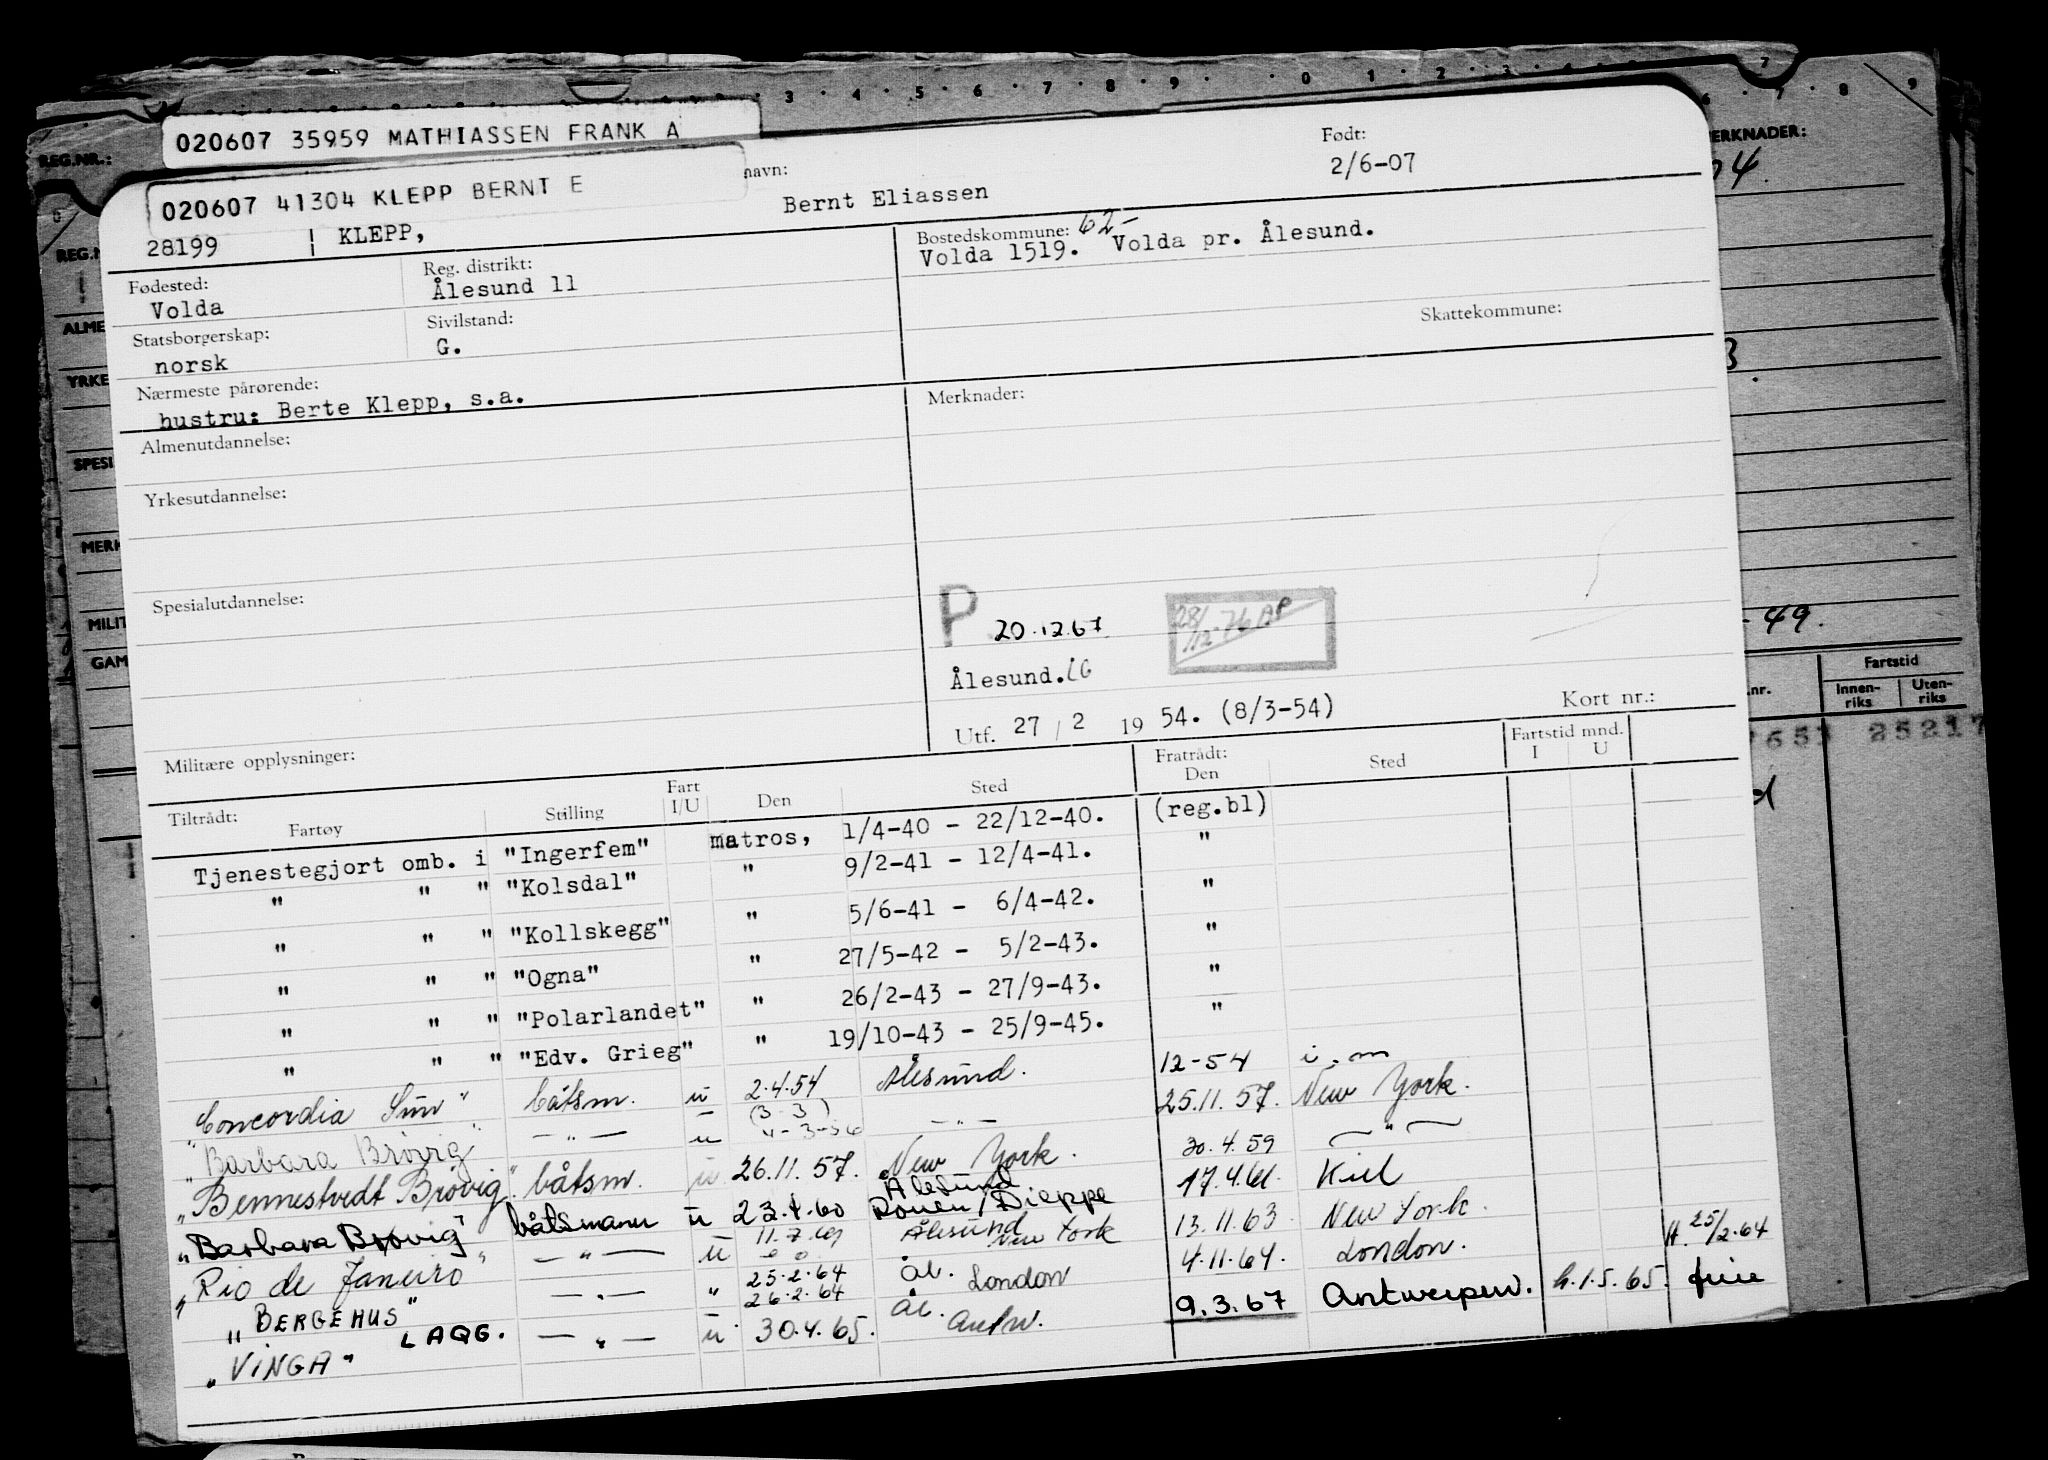 3 · 4 · 5 · 6 · 7 · 8 · 9 · · 0 1 · 2 · 3 · 4
7 · 8 9
REG.NR.:
MERKNADER:
020607 35959 MATHIASSEN FRANK A
020607 41304 KLEPP BERNT E
navn:
Bernt Eliassen
Født:
2/6-07
28199 KLEPP,
Bostedskommune: 62-
Volda 1519. Volda pr. Ålesund.
Fødested:
Volda
Reg. distrikt:
Ålesund 11
Statsborgerskap:
norsk
Sivilstand:
G.
Skattekommune:
Nærmeste pårørende:
hustru: Berte Klepp, s.a.
Merknader:
Almenutdannelse:
Yrkesutdannelse:
Spesialutdannelse:
P 20.12.67
28/12-76 AP
Ålesund.
Utf. 27 / 2 19 54. (8/3-54)
Kort nr.:
Militære opplysninger:
Tiltrådt: Fartøy Stilling Fart I/U Den Sted Fratrådt: Den Sted Fartstid mnd. I U
Tjenestegjort omb. i "Ingerfem" matros, 1/4-40 - 22/12-40. (reg.bl)
" " " "Kolsdal" " 9/2-41 - 12/4-41. "
" " " "Kollskegg" " 5/6-41 - 6/4-42. "
" " " "Ogna" " 27/5-42 - 5/2-43. "
" " " "Polarlandet" " 26/2-43 - 27/9-43. "
" " " "Edv. Grieg" " 19/10-43 - 25/9-45. "
"Concordia Sun" båtsm. u 2.4.54 Ålesund. 12-54
"Barbara Brøvig" — " — u — " — 25.11.57. New York.
"Bennestvedt Brøvig" båtsm. u 26.11.57. New York. 30.4.59 — " —
"Barbara Brøvig" båtsmann u Ålesund Rouen/Dieppe 17.4.61. Kiel
"Rio de Janeiro" — " — u Ålesund New York 13.11.63. New York.
"BERGEHUS" — " — " 25.2.64 26.2.64 Ål. London 4.11.64. London. H. 25/2-64
"VINGA" LAQG. — " — u 30.4.65. Ål. Antw. 9.3.67 Antwerpen. h.1.5.65. ferie
- 49.
Fartstid
Innenriks Utenriks
25217